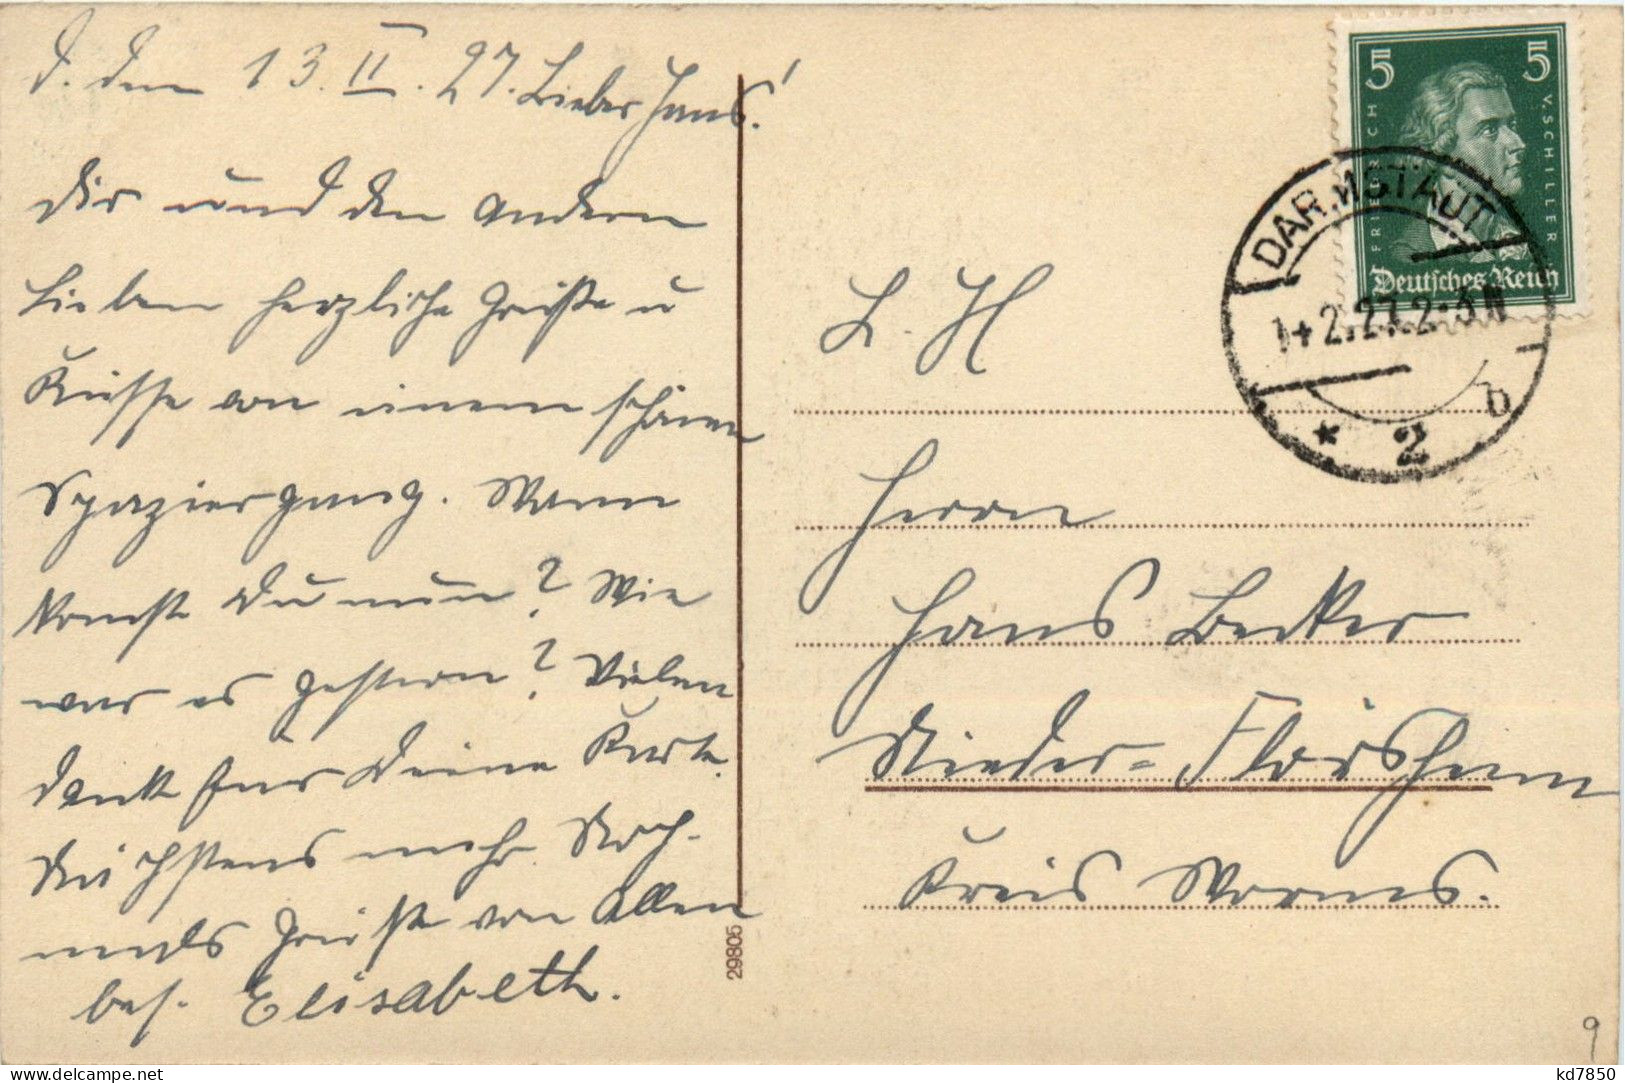 D. den 13.II.27. Lieber Hans!
Dir und den andern
Lieben herzliche Grüße u
Küsse von einem schönen
Spaziergang. Wann
kommst Du nun? Wie
war es gestern? Vielen
Dank für Deine Karte.
Nächstens mehr. Noch-
mals Grüße von Allen
bes. Elisabeth.
29805
5 5
FRIEDRICH V. SCHILLER
Deutsches Reich
DARMSTADT
14.2.27.2-3N
* 2 b
L. H
Herrn
Hans Becker
Nieder-Flörsheim
Kreis Worms.
9
kd7850